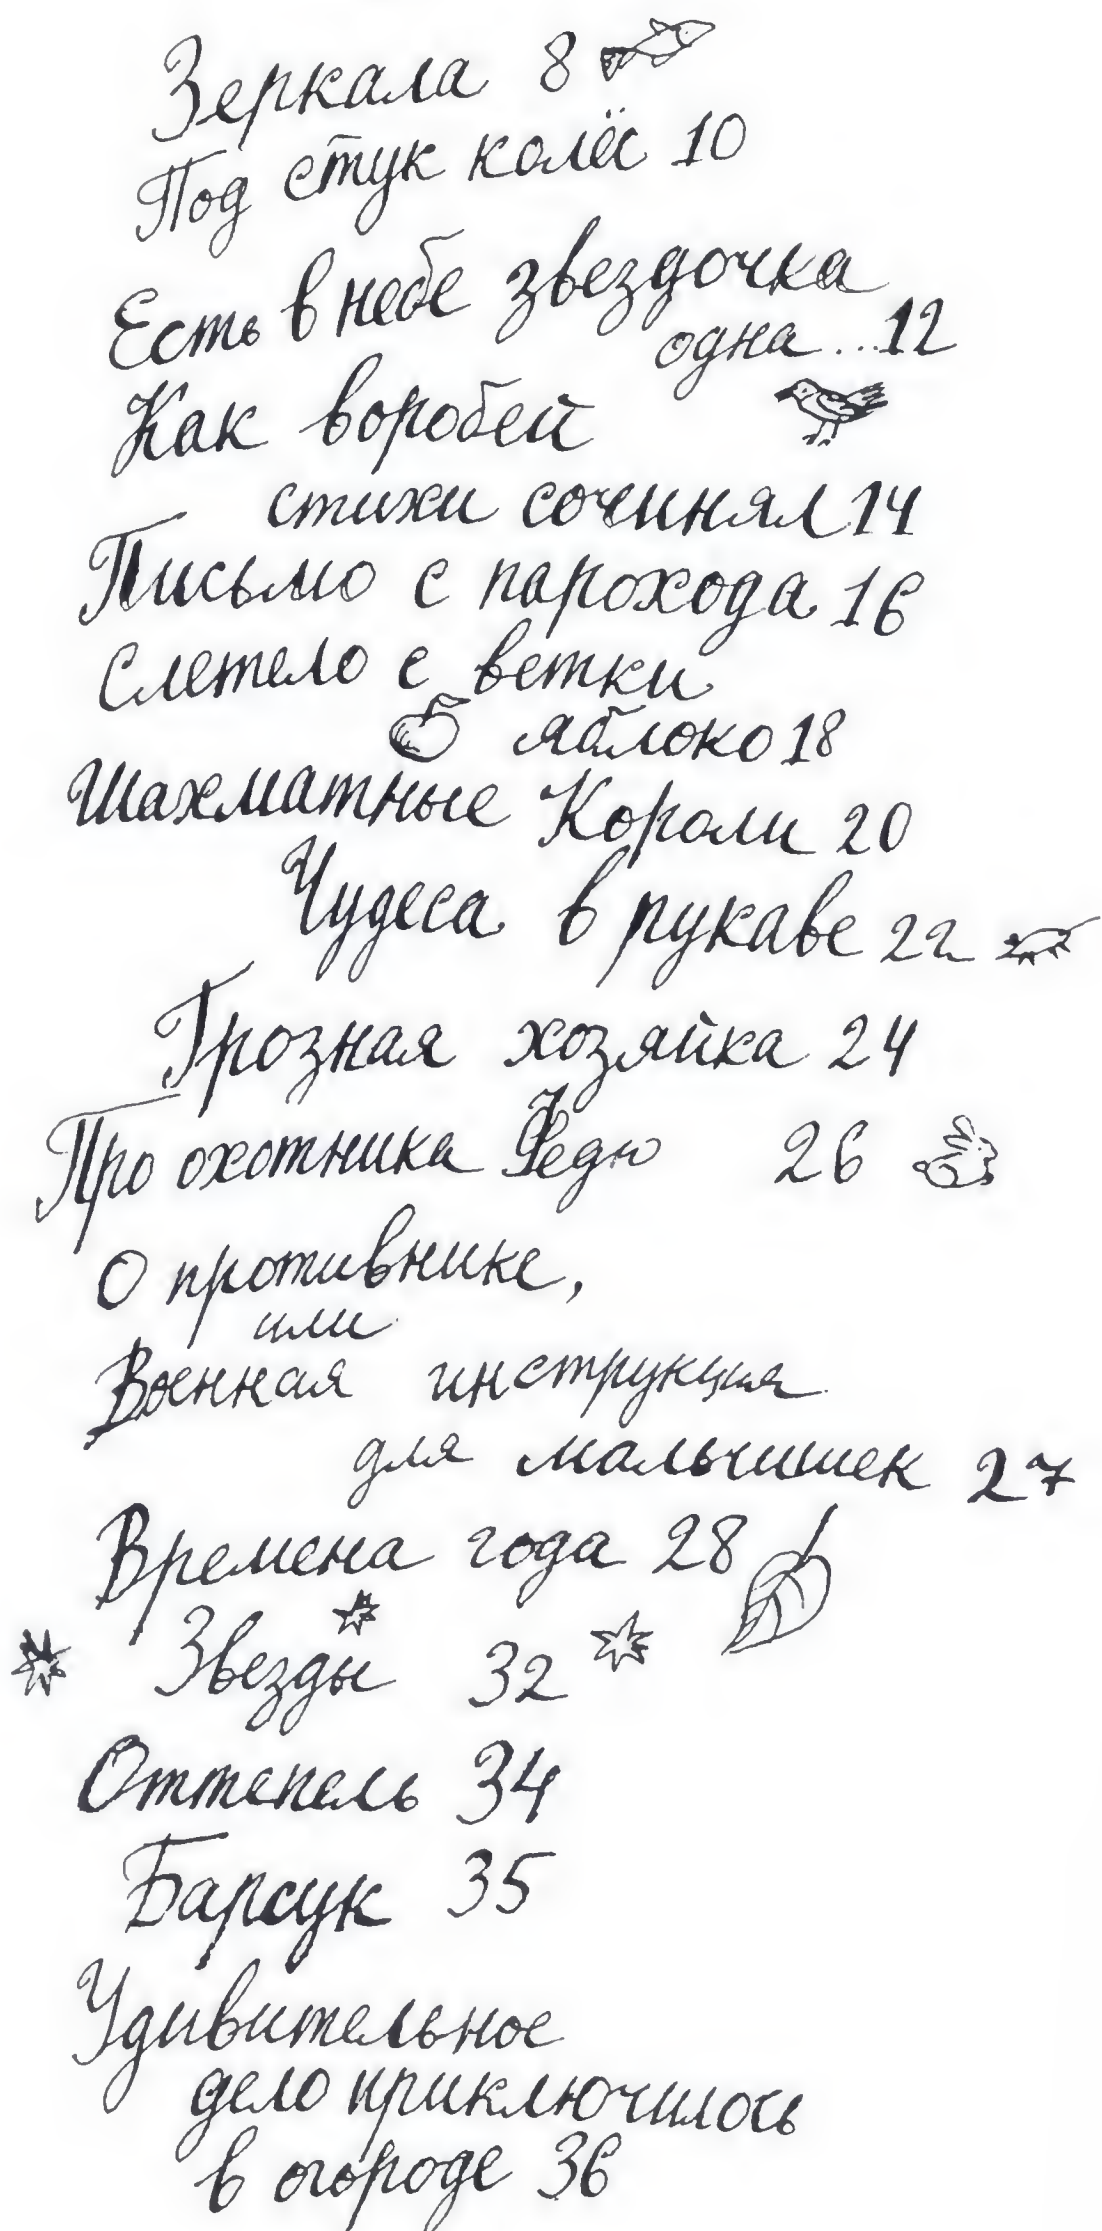 Зеркала 8
Под стук колёс 10
Есть в небе звездочка
одна...12
Как воробей
стихи сочинял 14
Письмо с парохода 16
Слетело с ветки
яблоко 18
Шахматные Короли 20
Чудеса в рукаве 22
Грозная хозяйка 24
Про охотника Федю 26
О противнике,
или
Военная инструкция
для мальчишек 27
Времена года 28
Звезды 32
Оттепель 34
Барсук 35
Удивительное
дело приключилось
в огороде 36